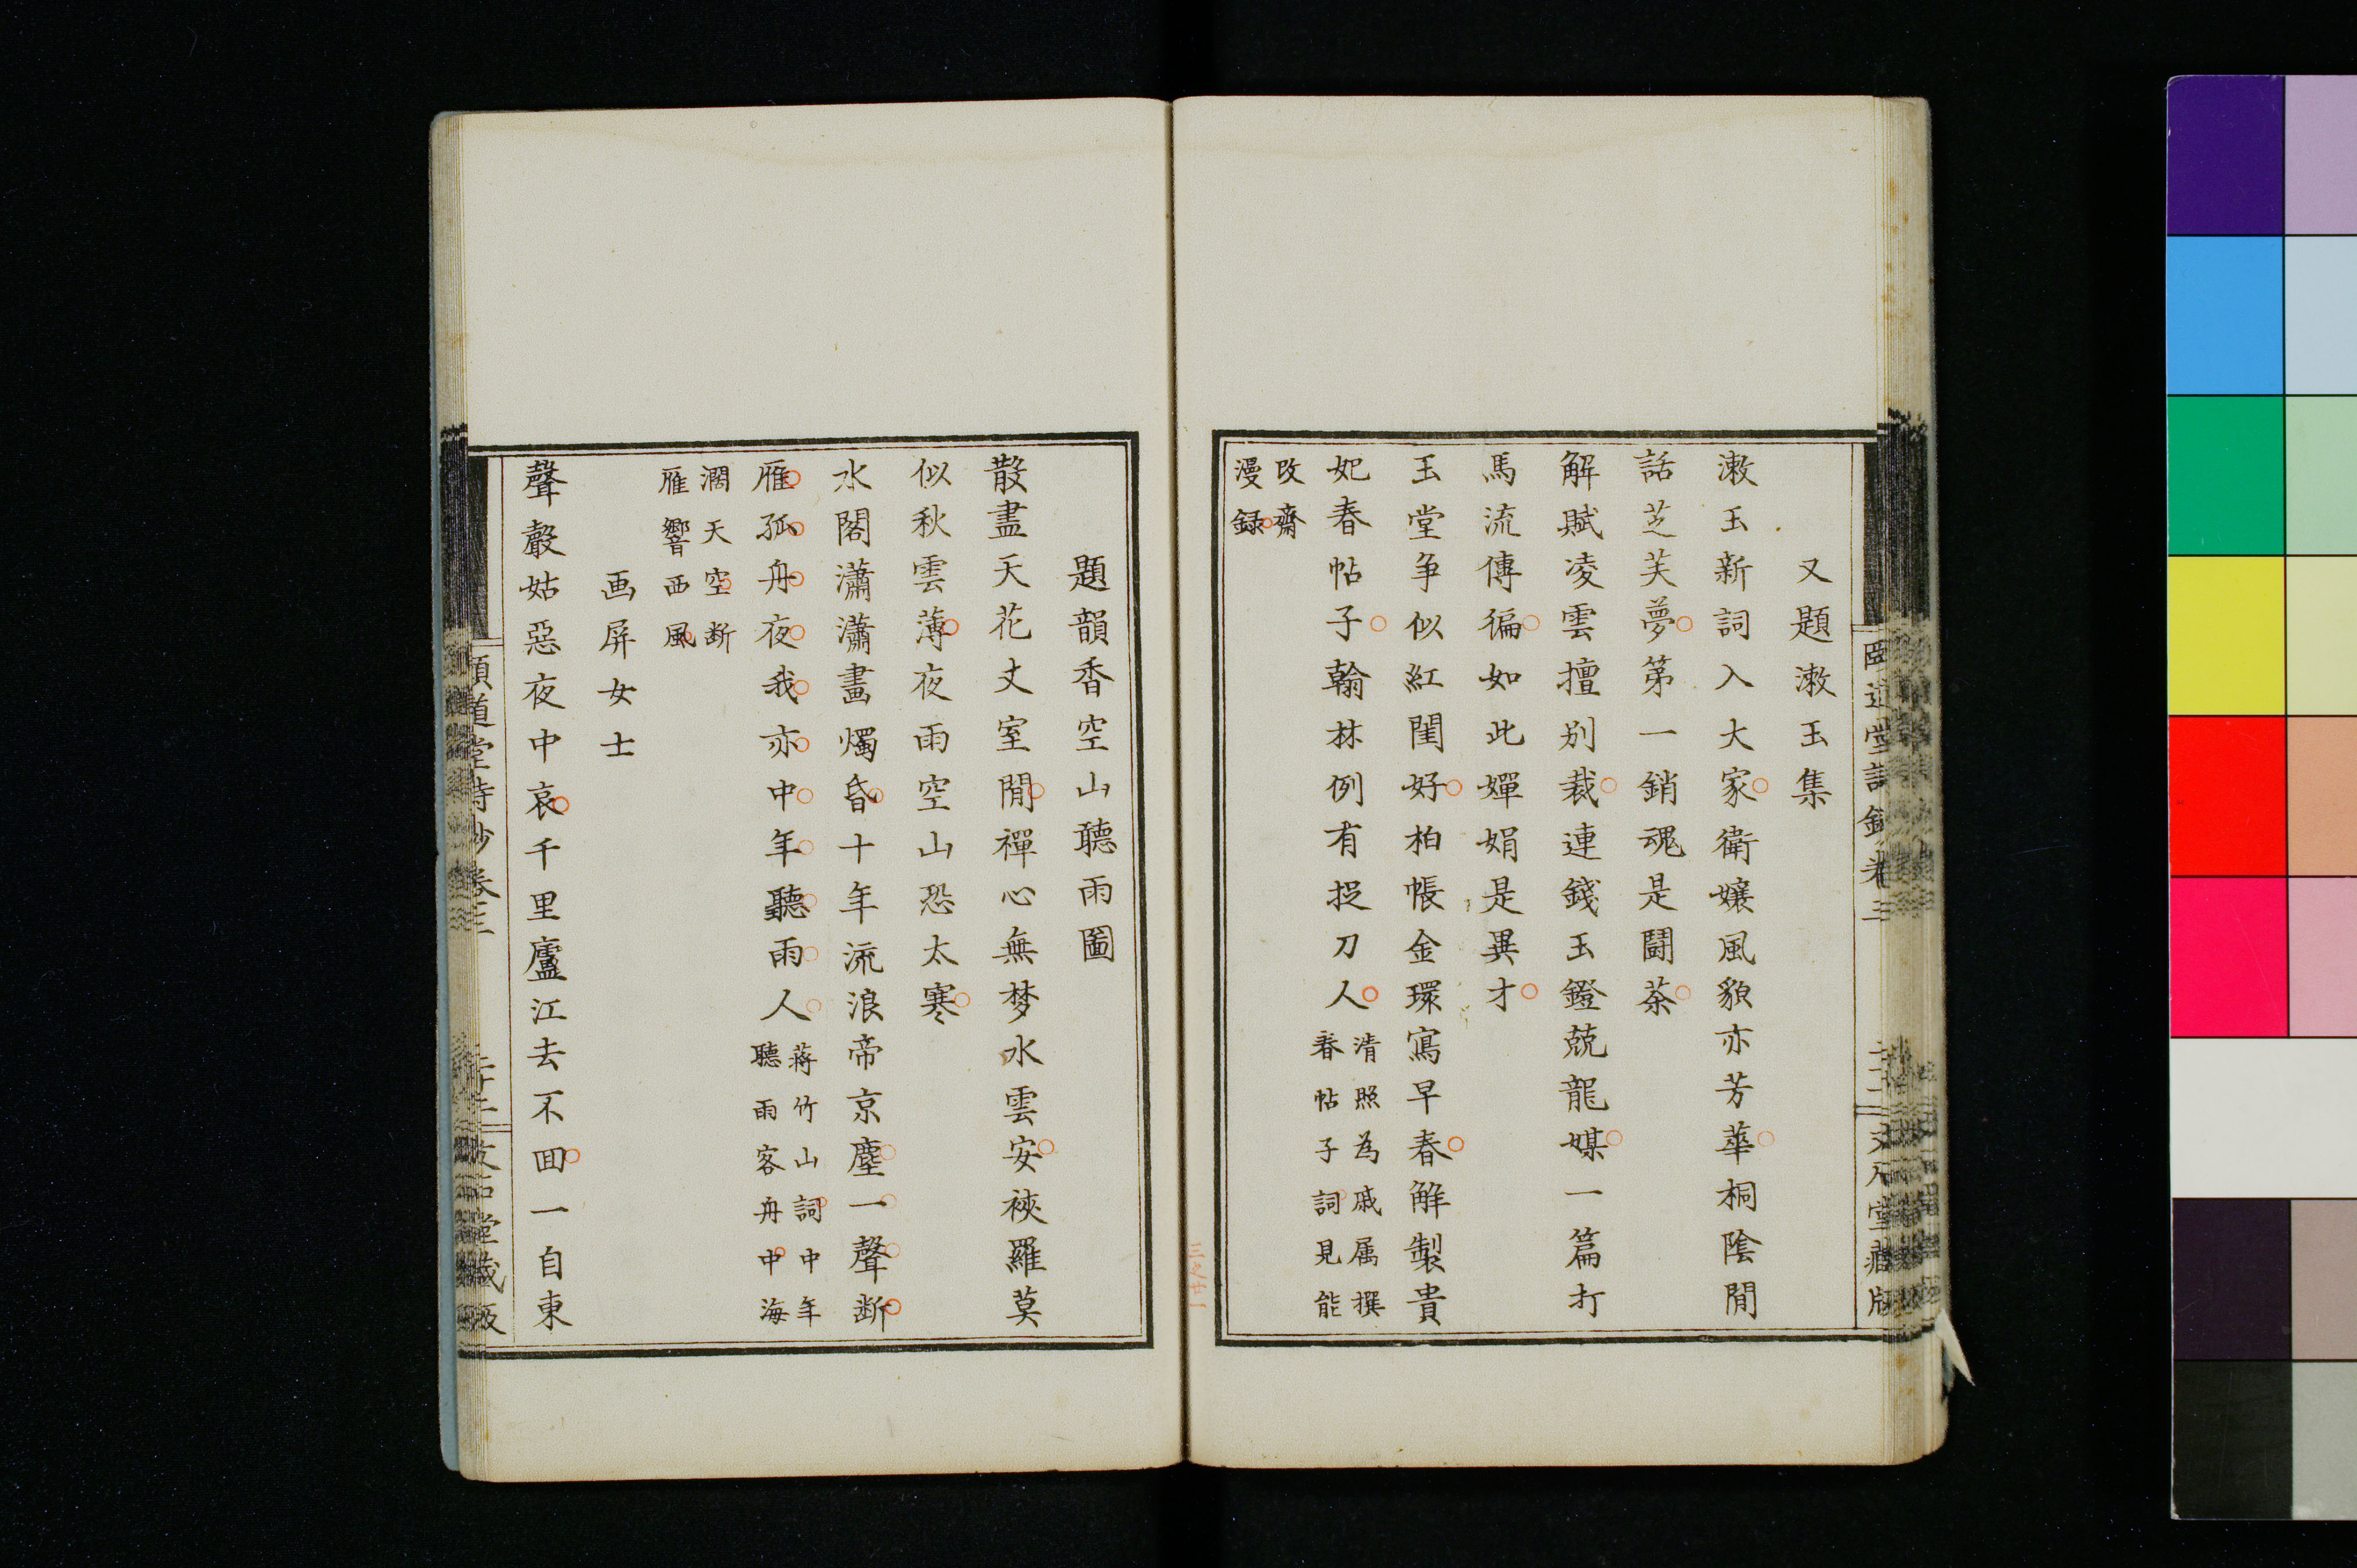 又題漱玉集
漱玉新詞入大家衛孃風貌亦芳華桐陰閒
話芝芙夢第一銷魂是鬪茶
解賦凌雲擅别裁連錢玉鐙兢龍媒一篇打
馬流傳徧如此嬋娟是異才
玉堂争似紅閨好柏帳金環寫早春解製貴
妃春帖子翰林例有捉刀人
清照為戚属撰
春帖子詞見能
改齋
漫録
題韻香空山聽雨圖
散盡天花丈室閒禪心無梦水雲安裌羅莫
似秋雲薄夜雨空山恐太寒
水閣瀟瀟畫燭昏十年流浪帝京塵一聲断
雁孤舟夜我亦中年聽雨人
蔣竹山詞中年
聽雨客舟中海
濶天空断
雁響西風
画屏女士
聲聲姑惡夜中哀千里廬江去不囬一自東
頤道堂詩鈔卷三